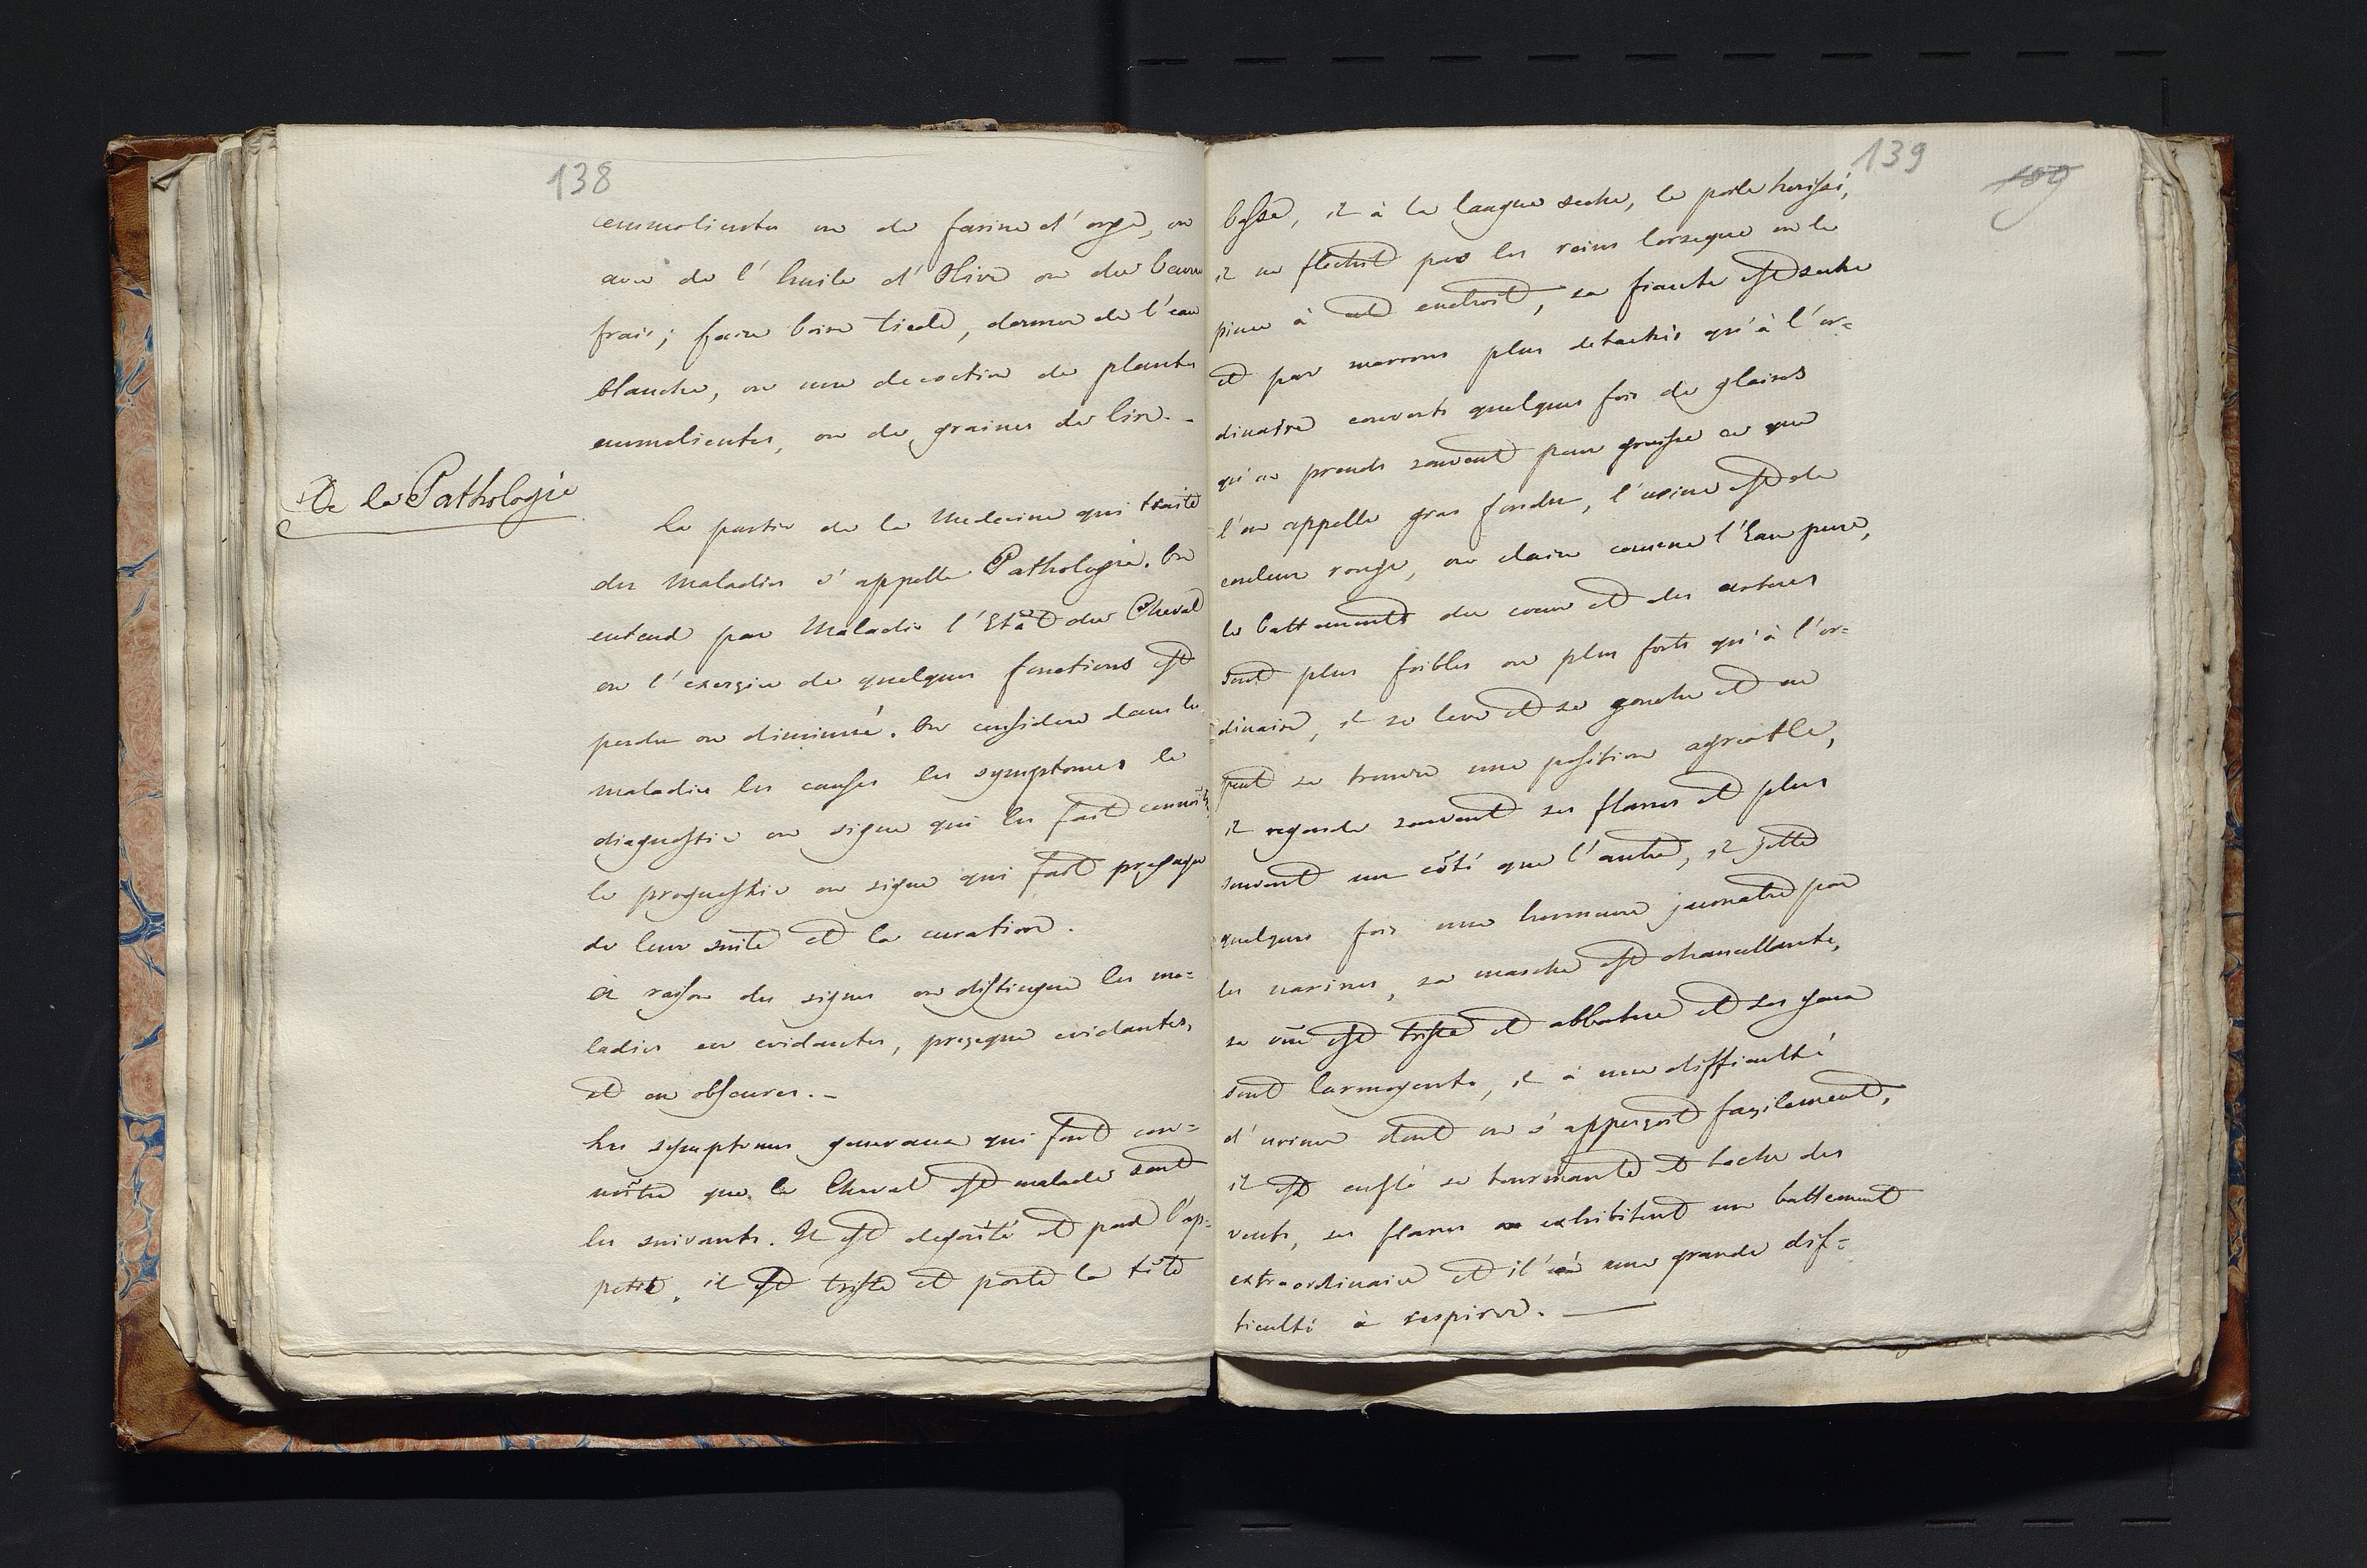 138
emmolientes ou de farine d'orge, ou
avec de l'huile d'Olive ou du beurre
frais; faire boire tiede, donner de l'eau
blanche, ou une decoction de plantes
emmolientes, ou de graines de lin. -
De la Pathologie
La partie de la Medecine qui traite
des Maladies s'appelle Pathologie. On
entend par Maladie l'Etat du Cheval
ou l'exersice de quelques fonctions est
perdu ou diminué. On considere dans les
maladies les causes les symptomes le
diagnostic ou signe qui les fait connoitre
le prognostic ou signe qui fait presager
de leur suite et la curation.
A raison des signes on distingue les ma=
ladies en evidantes, presque evidantes,
et en obscures. -
Les symptomes generaux qui font con=
noître que le Cheval est malade sont
les suivants. Il est degoûté et perd l'ap=
petit, il est triste et porte la tête
139
109
basse, il à la langue seche, le poile herissé,
il ne flechit pas les reins lorseque on le
pince à cet endroit, sa fiante est seche
et par marrons plus detachés qu'à l'or=
dinaire couverts quelques fois de glaires
qu'on prends souvent pour graisse ce que
l'on appelle gras fondu, l'urine est de
couleur rouge, ou claire comme l'Eau pure,
les battements du coeur et des arteres
sont plus foibles ou plus forts qu'à l'or=
dinaire, il se leve et se couche et ne
peut se trouver une position agreable,
il regarde souvent ses flancs et plus
souvent un côté que l'autre, il jette
quelques fois une hummeur jaunatre par
les narines, sa marche est chancellante,
sa vüe est triste et abbatue et ses yeux
sont larmoyents, il à une difficulté
d'uriner dont on s'apperçoit facilement,
il est enflé se tourmante et lache des
vents, ses flancs exhibitent un battement
extraordinaire et il à une grande dif=
ficulté à respirer. —